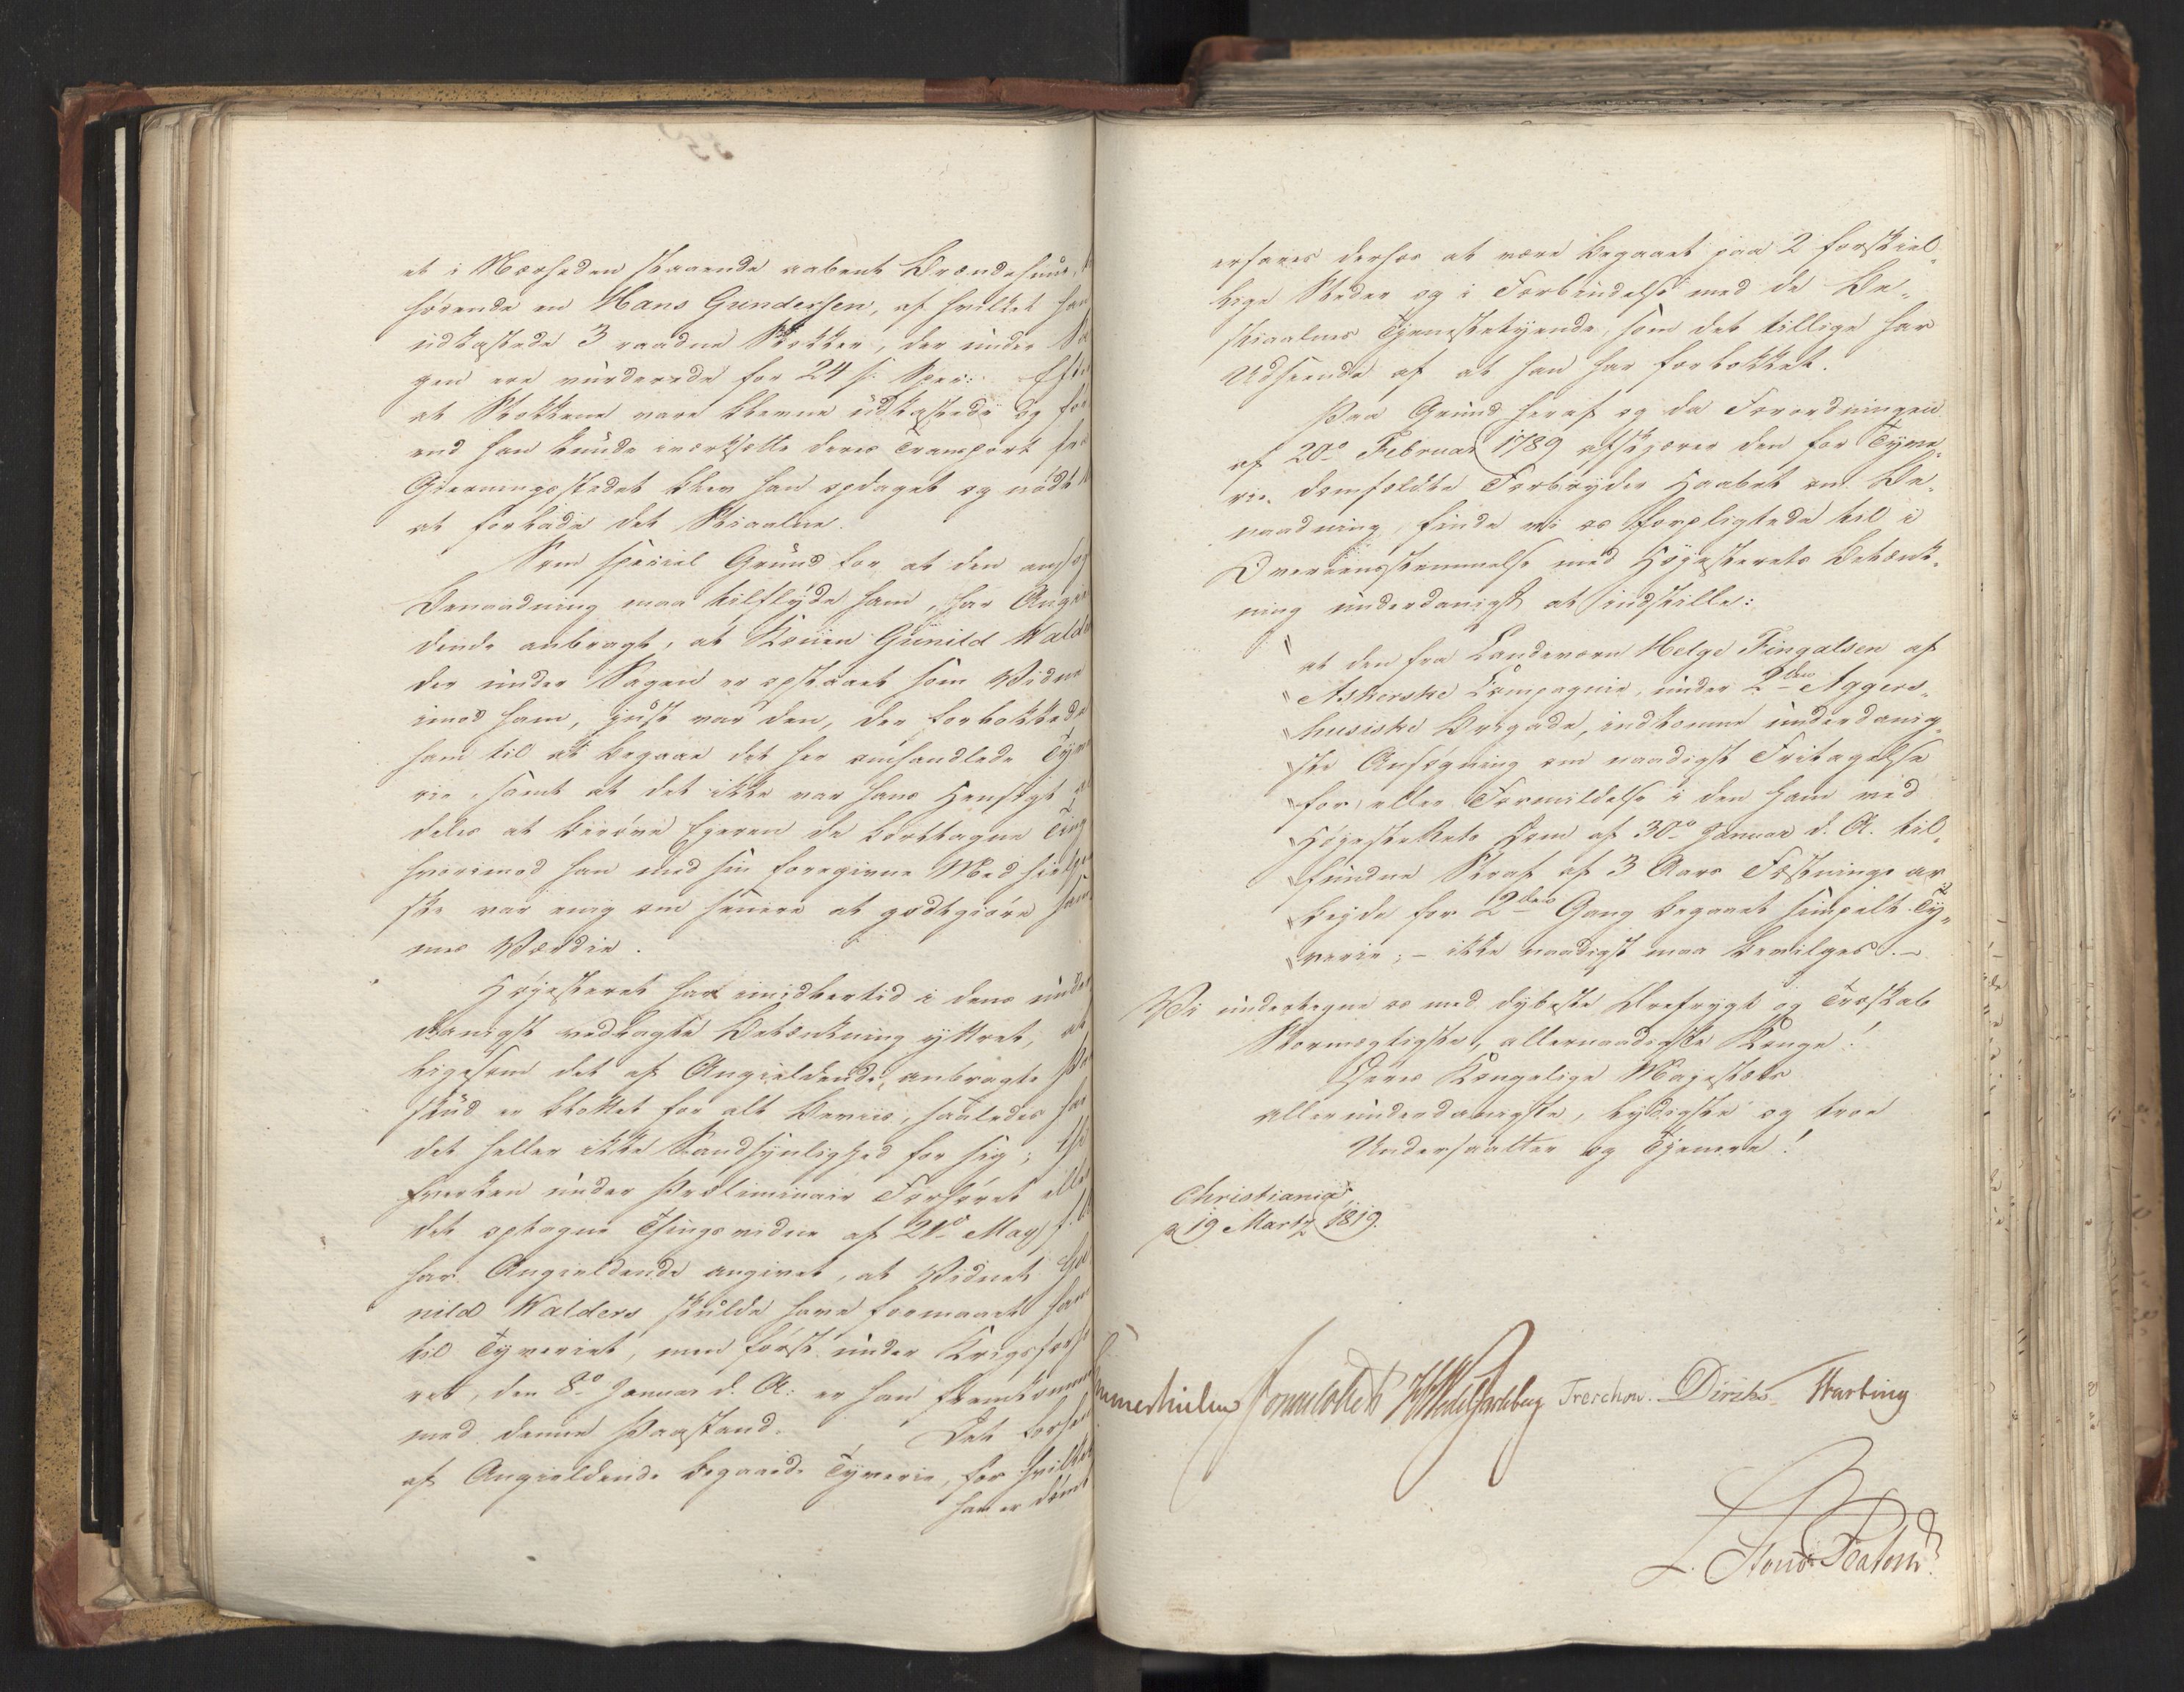 et i Nærheden staaende aabent Brændehuus,
hørende en Hans Gundersen, af hvilket han
udkastede 3 raadne Stokker, der under Sa
gen ere vurderede for 24 s: Spec: Efter
at Stokkene vare blevne udkastede og før
end han kunde iværksætte deres Transport fra
Gierningsstedet blev han opdaget og nødt
at forlade det Stiaalne.
Som speciel Grund for at den ansøgte
Benaadning maa tilflyde ham, har Angiel
dende anbragt, at Konen Gunild Walders
der under Sagen er opstaaet som Vidne
imod ham, just var den, der forlokkede
ham til at begaae det her omhandlede Tyve
rie, samt at det ikke var hans Hensigt
deles at berøve Eyeren de borttagne Ting
hvorimod han med sin foregivne Medhielper
ske var enig om senere at godtgiøre sam
mes Værdie.
Høyesteret har imidlertid i dens under
danigst vedlagte Betænkning yttret, at
ligesom det af Angieldende anbragte Paa
skud er blottet for alt Beviis, saaledes har
det heller ikke Sandsynlighed for sig, thi
hverken under Præliminair Forhøret eller
det optagne Thingsvidne af 21de May f. A.
har Angieldende angivet, at Vidnet Gu
nild Walders skulde have formaaet ham
til Tyveriet, men først under Krigsforhø
ret, den 8de Januar d. A: er han fremkommen
med denne Paastand. Det
af Angieldende begaaede Tyverie, for hvilket
han er dømt
erfares derhos at være begaaet paa 2 forskiel„
lige Steder og i Forbindelse med de Be„
stiaalnes Tjenestetyende, som det tillige har
Udseende af at han har forlokket.
Paa Grund heraf og da Forordningen
af 20de Februar 1789 afskjærer den for Tyve„
rie domfældte Forbryder Haabet om Be„
naadning, finde vi os forpligtede til i
Overeensstemmelse med Høyesterets Betænk„
ning underdanigst at indstille:
" at den fra Landeværn Helge Fingalsen af
" Askerske Compagnie, under 2den Aggers„
" huusiske Brigade, indkomne underdanig„
" ste Ansøgning om naadigst Fritagelse
" for, eller Formildelse i den ham ved
" HøyesteRets Dom af 30de Januar d. A. til„
" fundne Straf af 3 Aars Fæstnings ar„
" beyde for 2den Gang begaaet simpelt Ty„
" verie; – ikke naadigst maa bevilges. –
Vi undertegne os med dybeste Ærefrygt og Troskab
Stormægtigste, allernaadigste Konge!
Deres Kongelige Majestæts
allerunderdanigste, lydigste og troe
Undersaatter og Tjenere!
Christiania
a 19 Martz 1819.
Sommerhielm Wedel Jarlsberg Treschow. Diriks Harbing